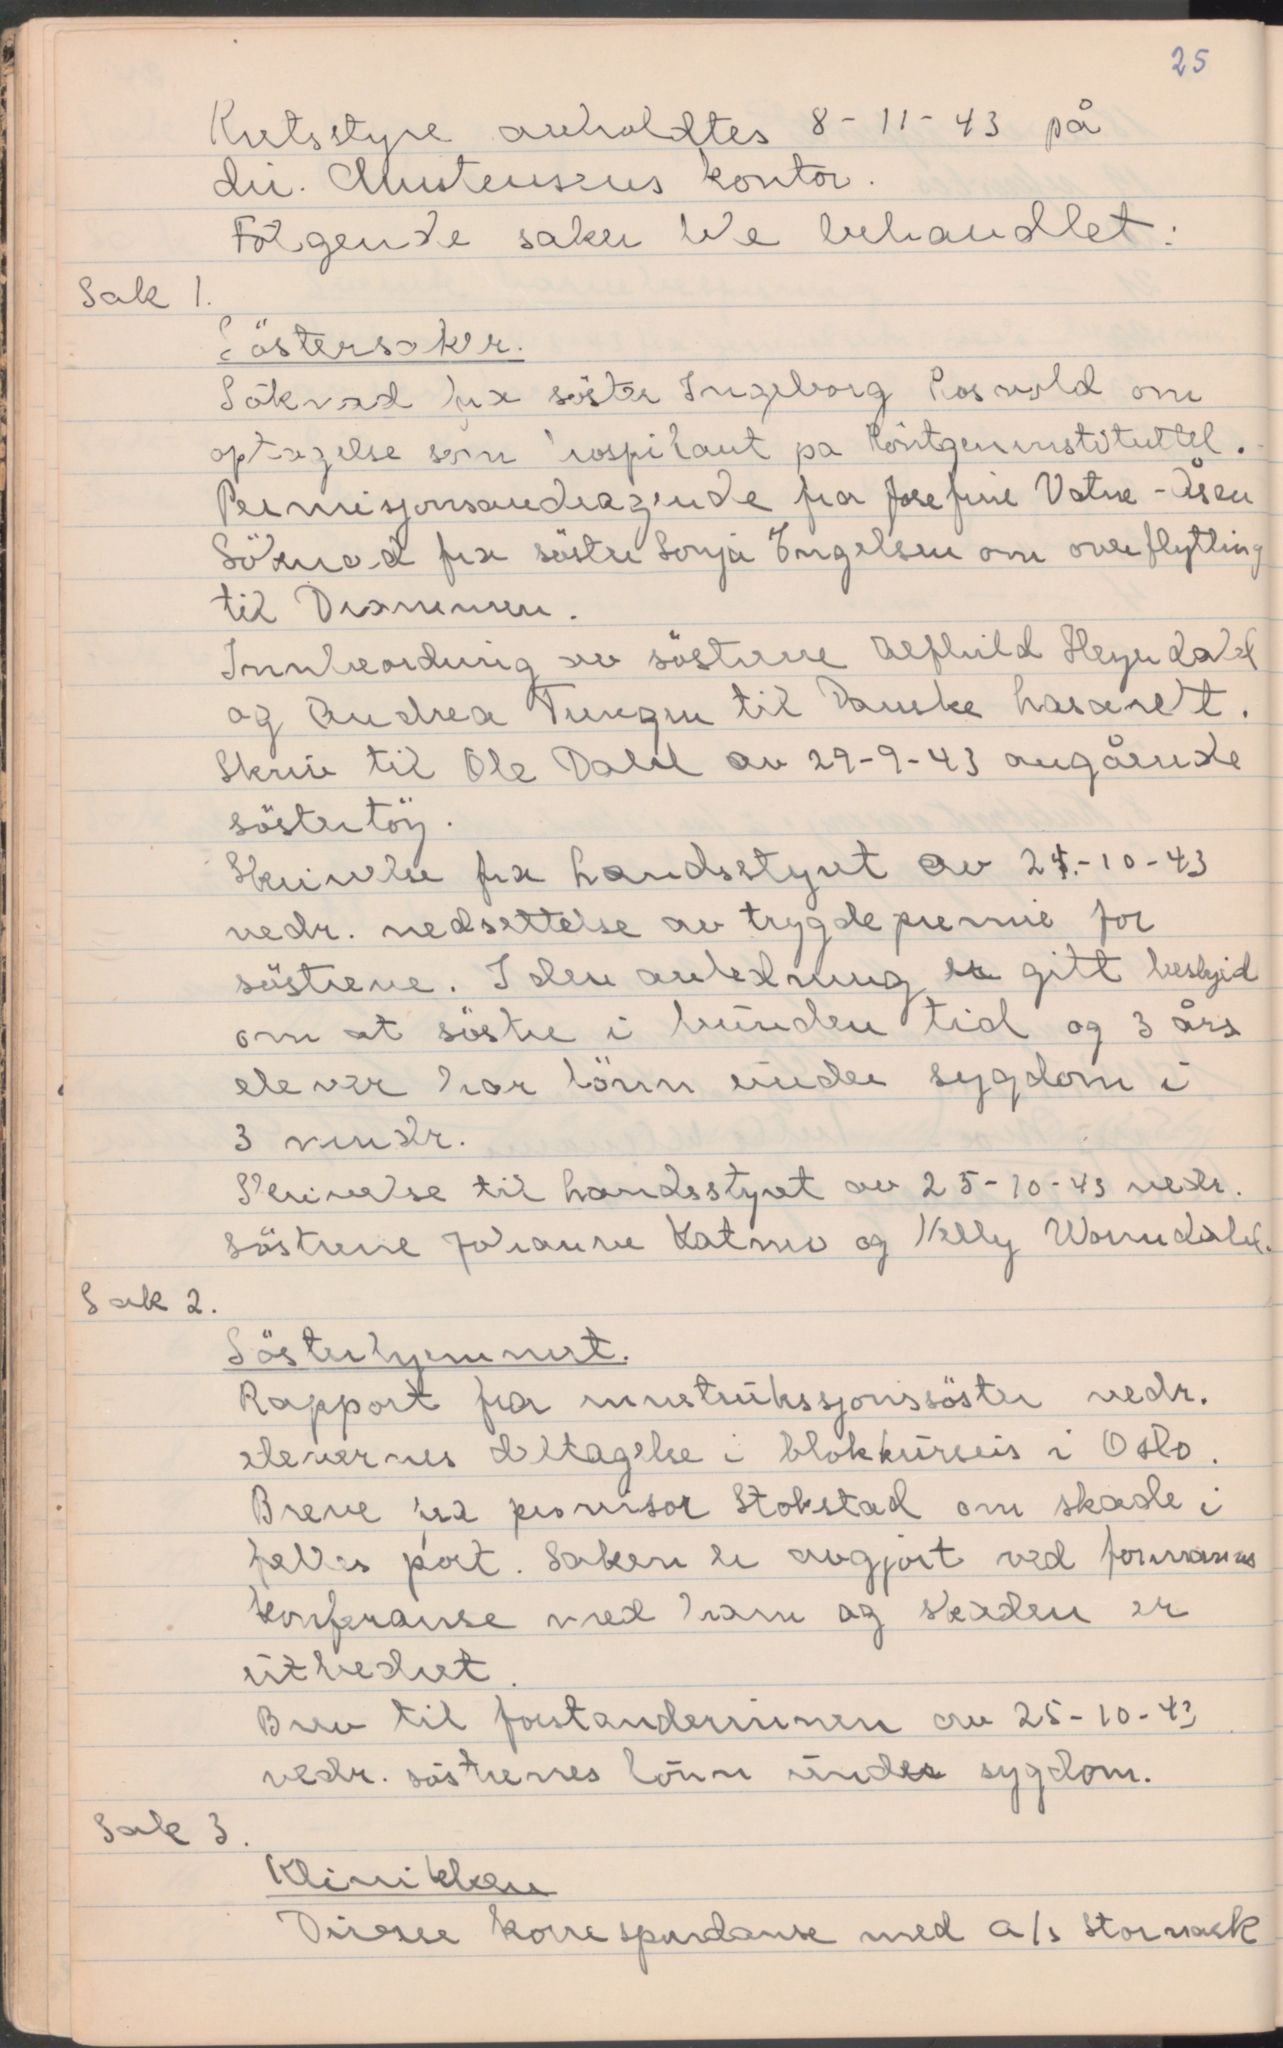 25
Kretsstyre avholdtes 8-11-43 på
dir. Christensens kontor.
Følgende saker ble behandlet:
Sak 1.
Söstersaker.
Söknad fra söster Ingeborg Rosvold om
optagelse som hospitant på Röntgeninstituttet.
Permisjonsandragende fra Josefine Vatne-Åsen
Söknad fra söster Sonja Engelsen om overflytting
til Drammen.
Innbeordring av söstrene Alfhild Heyerdahl
og Andrea Tungen til Danske lasarett.
Skriv til Ole Dahl av 29-9-43 angående
söstertöy.
Skrivelse fra Landsstyret av 25-10-43
vedr. nedsettelse av trygdepremie for
söstrene. I den anledning er gitt beskjed
om at söstre i bunden tid og 3 års
elever har lönn under sygdom i
3 mndr.
Skrivelse til Landsstyret av 25-10-43 vedr.
söstrene Johanne Katmo og Nelly Worndahl.
Sak 2.
Sösterhjemmet.
Rapport fra instruksjonssöster vedr.
elevernes deltagelse i blokkursus i Oslo.
Breve fra provisor Stokstad om skade i
felles port. Saken er avgjort ved formanns
konferanse med ham og skaden er
utbedret.
Brev til forstanderinnen av 25-10-43
vedr. söstrenes lönn under sygdom.
Sak 3.
Klinikken
Diverse korrespondanse med A/s Storvask